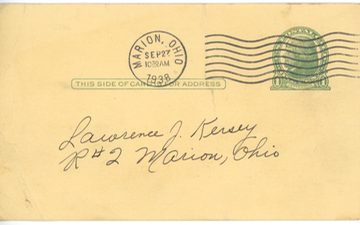 MARION, OHIO
SEP 27
1938
THIS SIDE OF CARD IS FOR ADDRESS
Lawrence J. Kersey
R#2 Marion, Ohio